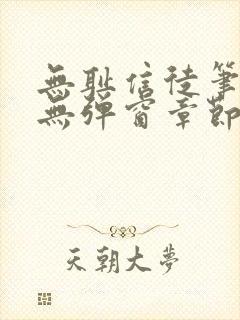 無耻信徒筆
無彈窗章節
天朝大夢